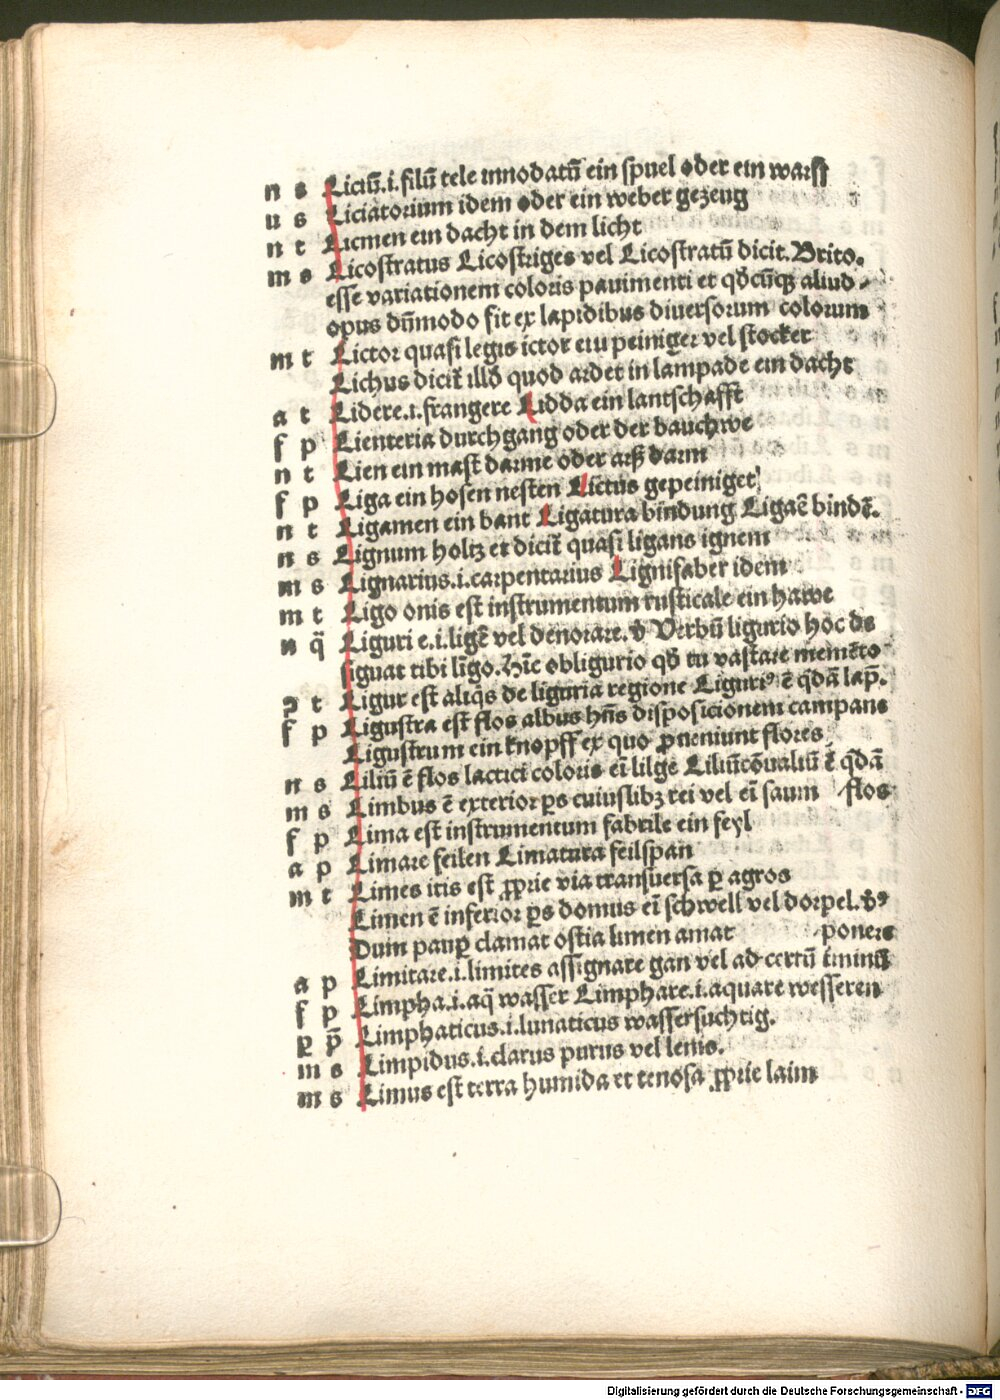 n s Liciū.i.filū tele innodatū ein spuel oder ein warff
n s Liciatorium idem oder ein weber gezeug
n t Licmen ein dacht in dem licht
m s Licostratus Licostriges vel Licostratū dicit.Brito.
esse variationem coloris pauimenti et qđcūqꝫ aliud
opus dūmodo fit ex lapidibus diuersorum colorum
m t Lictor quasi legis ictor ein peiniger vel stocker
Lichus dicit̄ illđ quod ardet in lampade ein dacht
a t Lidere.i.frangere Lidda ein lantschafft
f p Lienteria durchgang oder der bauchwe
n t Lien ein mast darme oder arß darm
f p Liga ein hosen nesten Lictus gepeiniget
n t Ligamen ein bant Ligatura bindung Ligaē bindē.
n s Lignum holtz et dicit̄ quasi ligans ignem
m s Lignarius.i.carpentarius Lignifaber idem
m t Ligo onis est instrumentum rusticale ein hawe
n q̄ Liguri e.i.ligē vel deuorare. Verbū ligurio hoc de
siguat tibi līgo.Hīc obligurio qđ tu vastare memēto
ꝯ t Ligur est aliq̄s de liguria regione Liguriꝰ ē q̄dā lap̄.
f p Ligustra est flos albus hn̄s disposicionem campane
Ligustrum ein knopff ex quo ꝓueniunt flores
n s Liliū ē flos lactici coloris eī lilge Liliūcōualiū ē q̄dā
m s Limbus ē exterior ꝑs cuiuslibꝫ rei vel eī saum flos
f p Lima est instrumentum fabrile ein feyl
a p Limare feilen Limatura feilspan
m t Limes itis est ꝓprie via transuersa ꝑ agros
Limen ē inferior ꝑs domus eī schwell vel dorpel.v̄ꝰ
Dum pauꝑ clamat ostia limen amat ponere
a p Limitare.i.limites assignare gan vel ad certū t̄minū
f p Limpha.i.aq̄ wasser Limphare.i.aquare wesseren
ꝑ p̄ Limphaticus.i.lunaticus wassersuchtig.
m s Limpidus.i.clarus purus vel lenis.
m s Limus est terra humida et tenosa ꝓprie laim
Digitalisierung gefördert durch die Deutsche Forschungsgemeinschaft - DFG